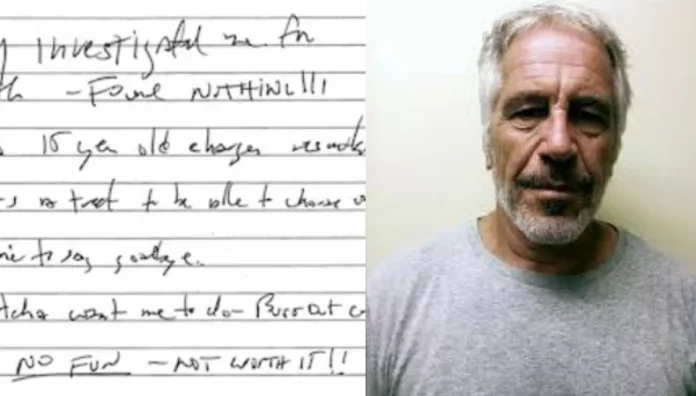 investigated me for
— Found NOTHING!!!
year old charges
treat to be able to choose
to say goodbye.
want me to do — Burst out
NO FUN — NOT WORTH IT!!